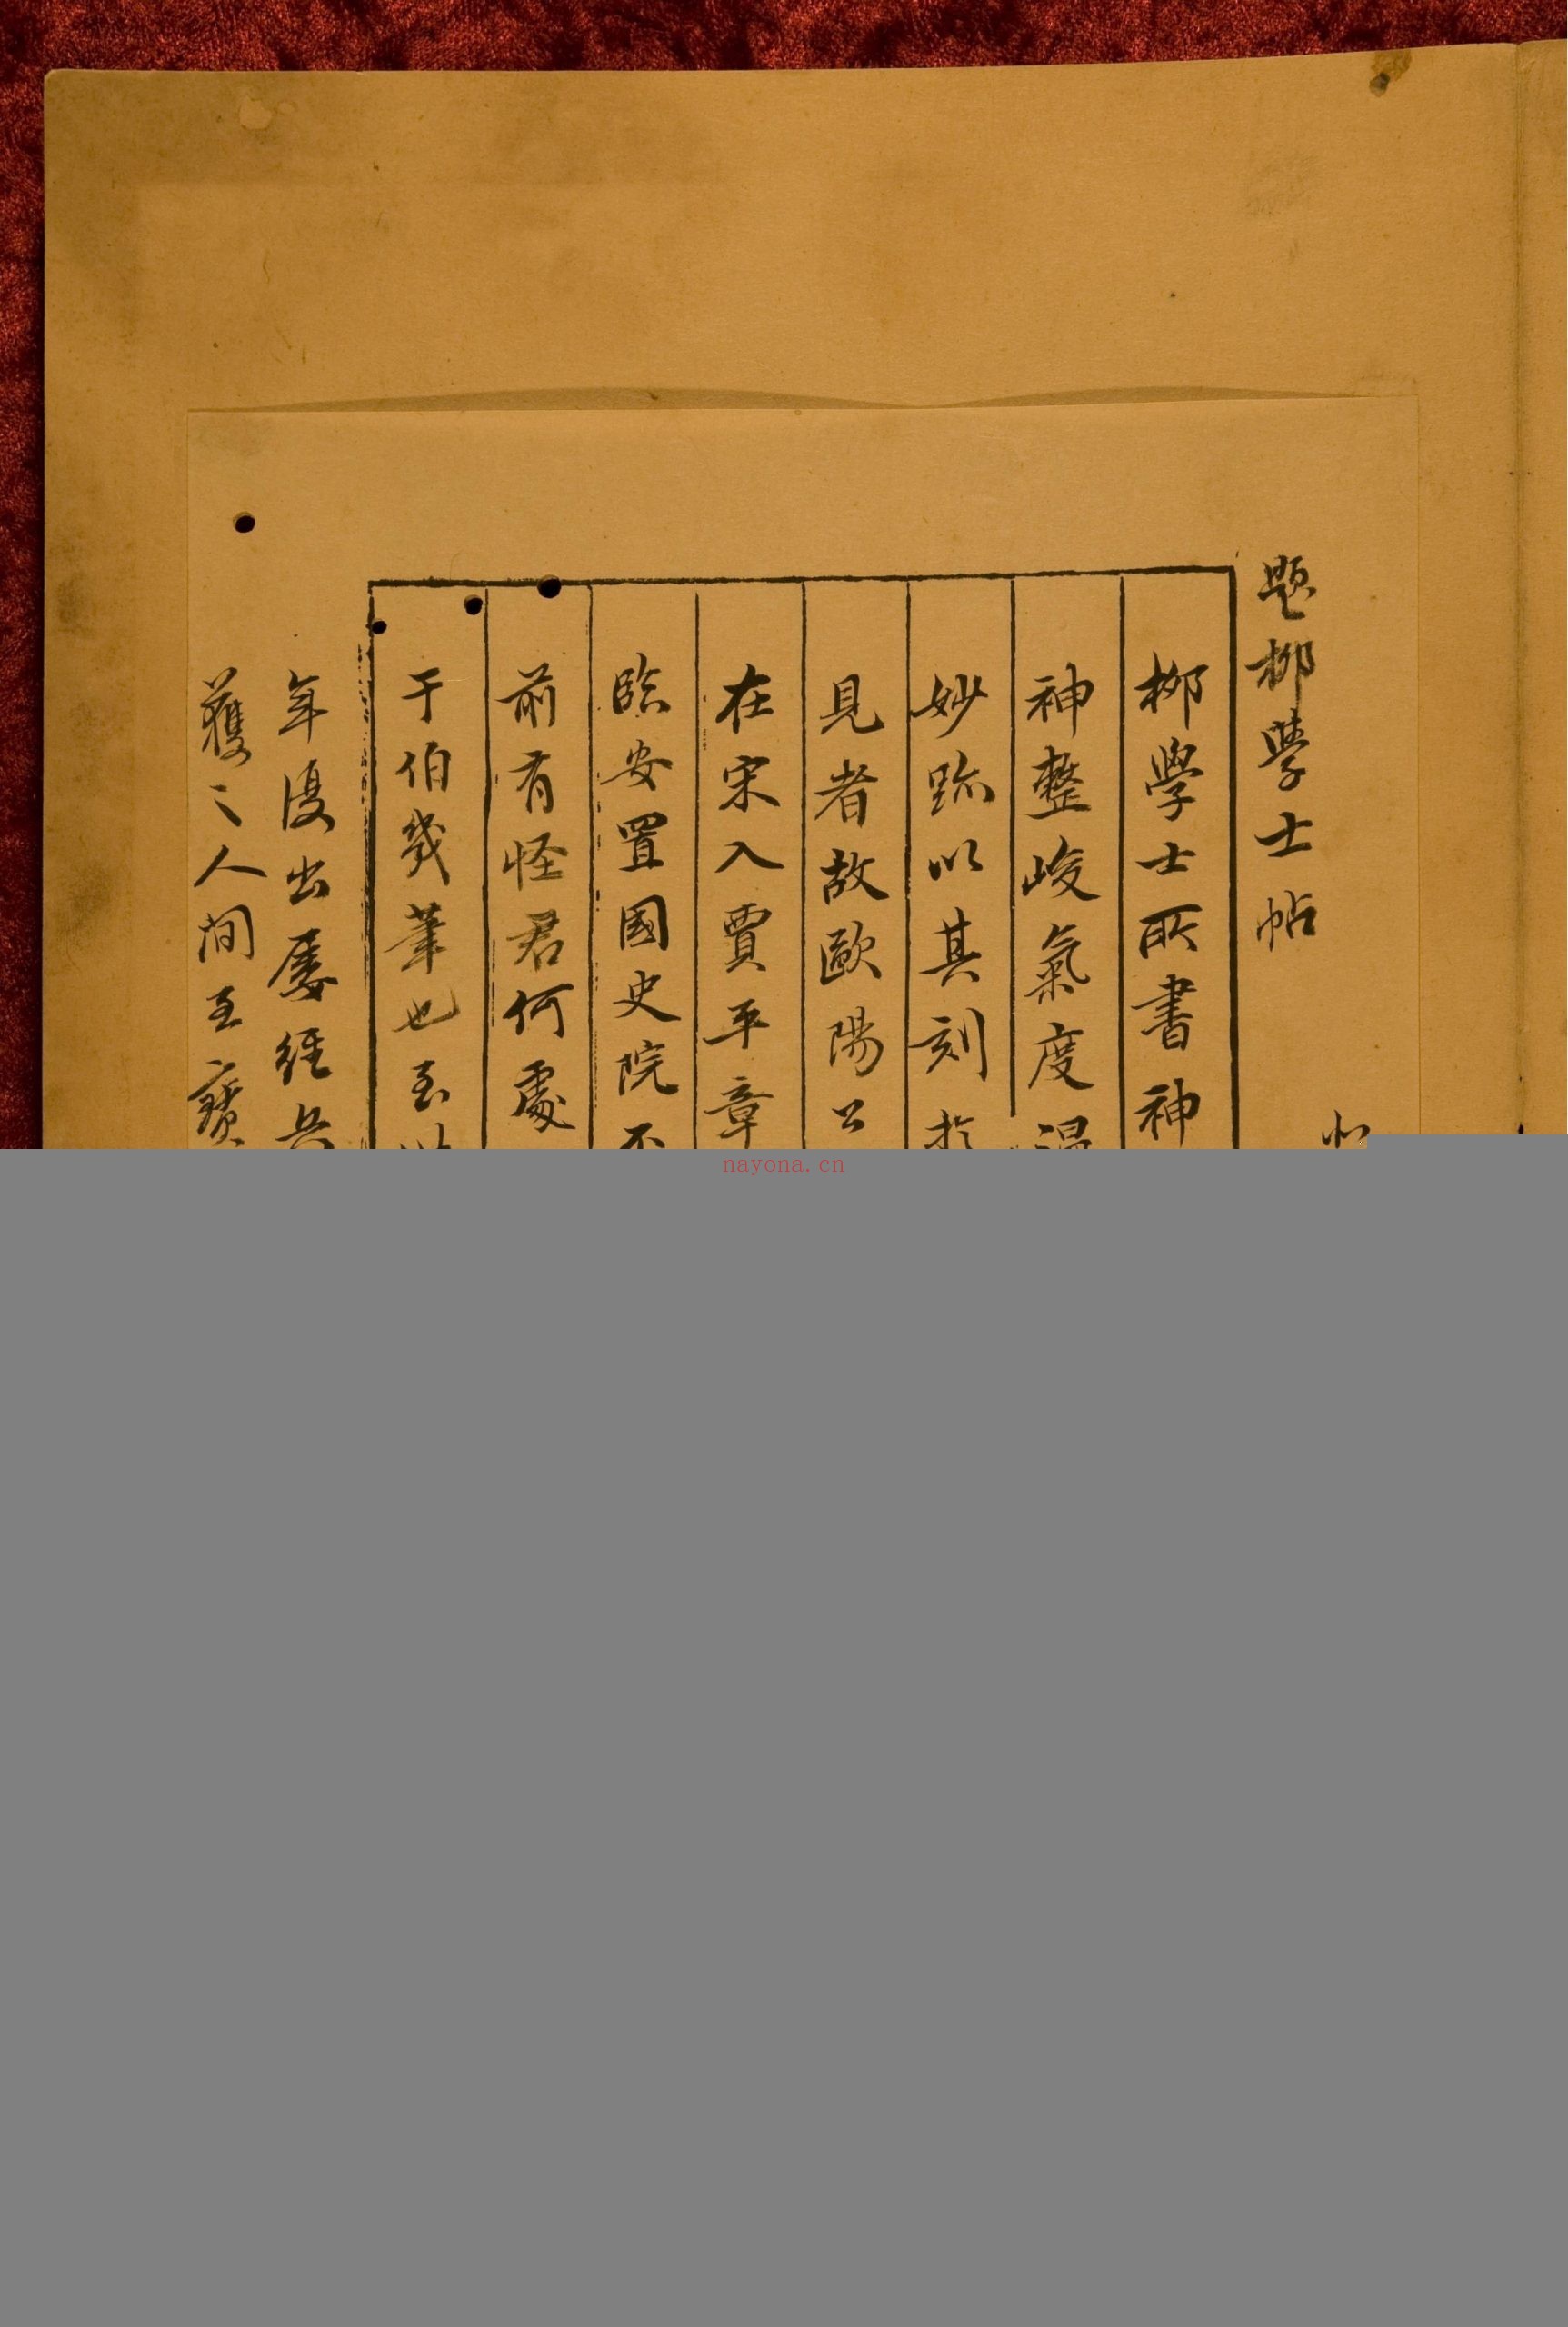 题柳學士帖
柳學士所書神
神整峻氣度温
妙跡以其刻於
見者故歐陽公
在宋入賈平章
臨安置國史院不
前有怪君何處
于伯幾筆也至
年復出屡經兵
獲之人间至寳
nayona.cn